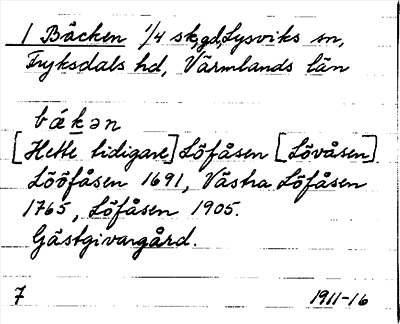 1 Bäcken 1/4 sk.gd, Lysviks sn,
Fryksdals hd, Värmlands län
bákən
[Hette tidigare] Löfåsen [Lövåsen]
Lööfåsen 1691, Västra Löfåsen
1765, Löfåsen 1905.
Gästgivargård.
7 1911-16